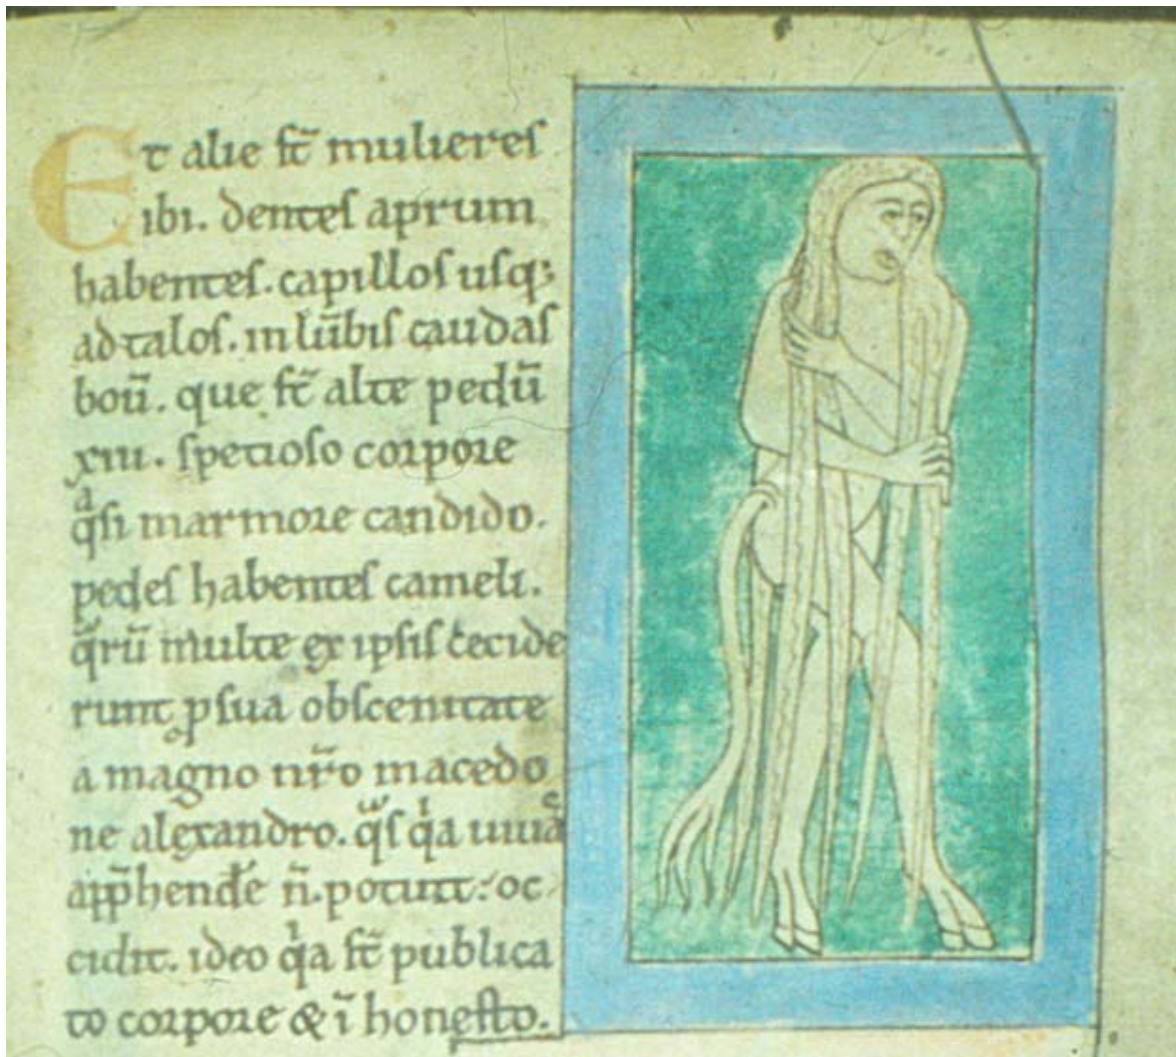 Et alie st̄ mulieres
ibi. dentes aprum
habentes. capillos usq;
ad talos. in lūbis caudas
boū. que st̄ alte pedū
xiii. spetioso corpore
qͣsi marmore candido.
pedes habentes cameli.
q̄rū multe ex ipsis cecide
runt ꝓ sua obscenitate
a magno nr̄o macedo
ne alexandro. qͦs qͥa uiuas
app̄hendēe n̄ potuit: oc
cidit. ideo qͥa st̄ publica
to corpore & ī honesto.